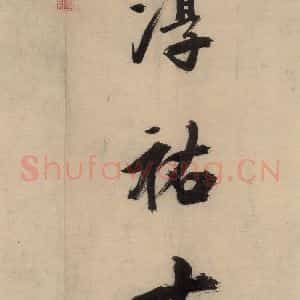 淳祐
Shufawang.CN